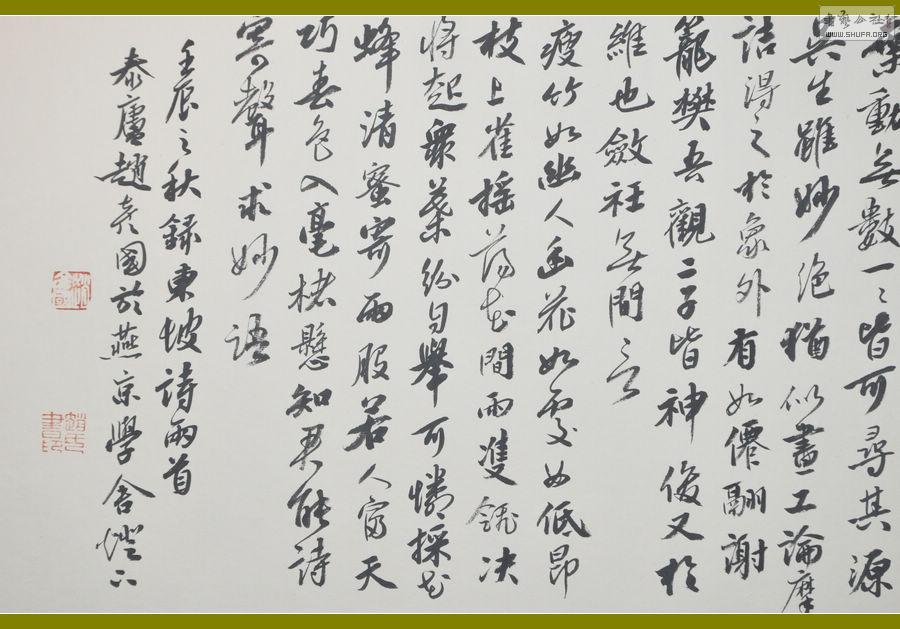 葉動無數一々皆可尋其源
吳生雖妙絕猶似畫工論摩
詰得之於象外有如僊翮謝
籠樊吾觀二子皆神俊又於
維也斂衽無間言
瘦竹如幽人幽花如處女低昂
枝上雀搖蕩花間雨雙翎決
將起眾葉紛自舉可憐採花
蜂清蜜寄兩股若人富天
巧春色入毫楮懸知君能詩
寄聲求妙語
壬辰之秋錄東坡詩兩首
泰廬趙彥國於燕京學舍燈下
趙氏書印
WWW.SHUFA.ORG